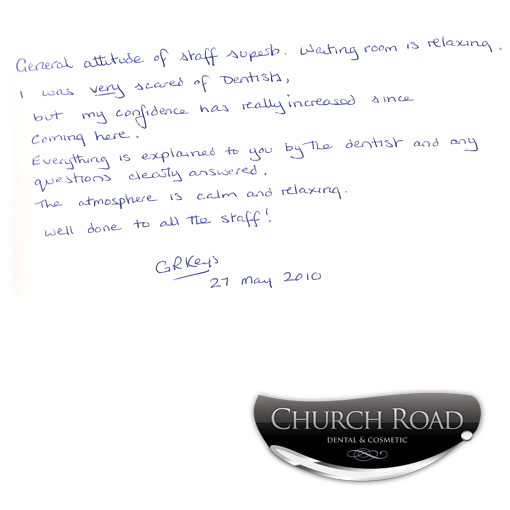 General attitude of staff superb. Waiting room is relaxing.
I was very scared of Dentists,
but my confidence has really increased since
coming here.
Everything is explained to you by the dentist and any
questions clearly answered.
The atmosphere is calm and relaxing.
well done to all the staff!
GRKeys
27 May 2010
CHURCH ROAD
DENTAL & COSMETIC